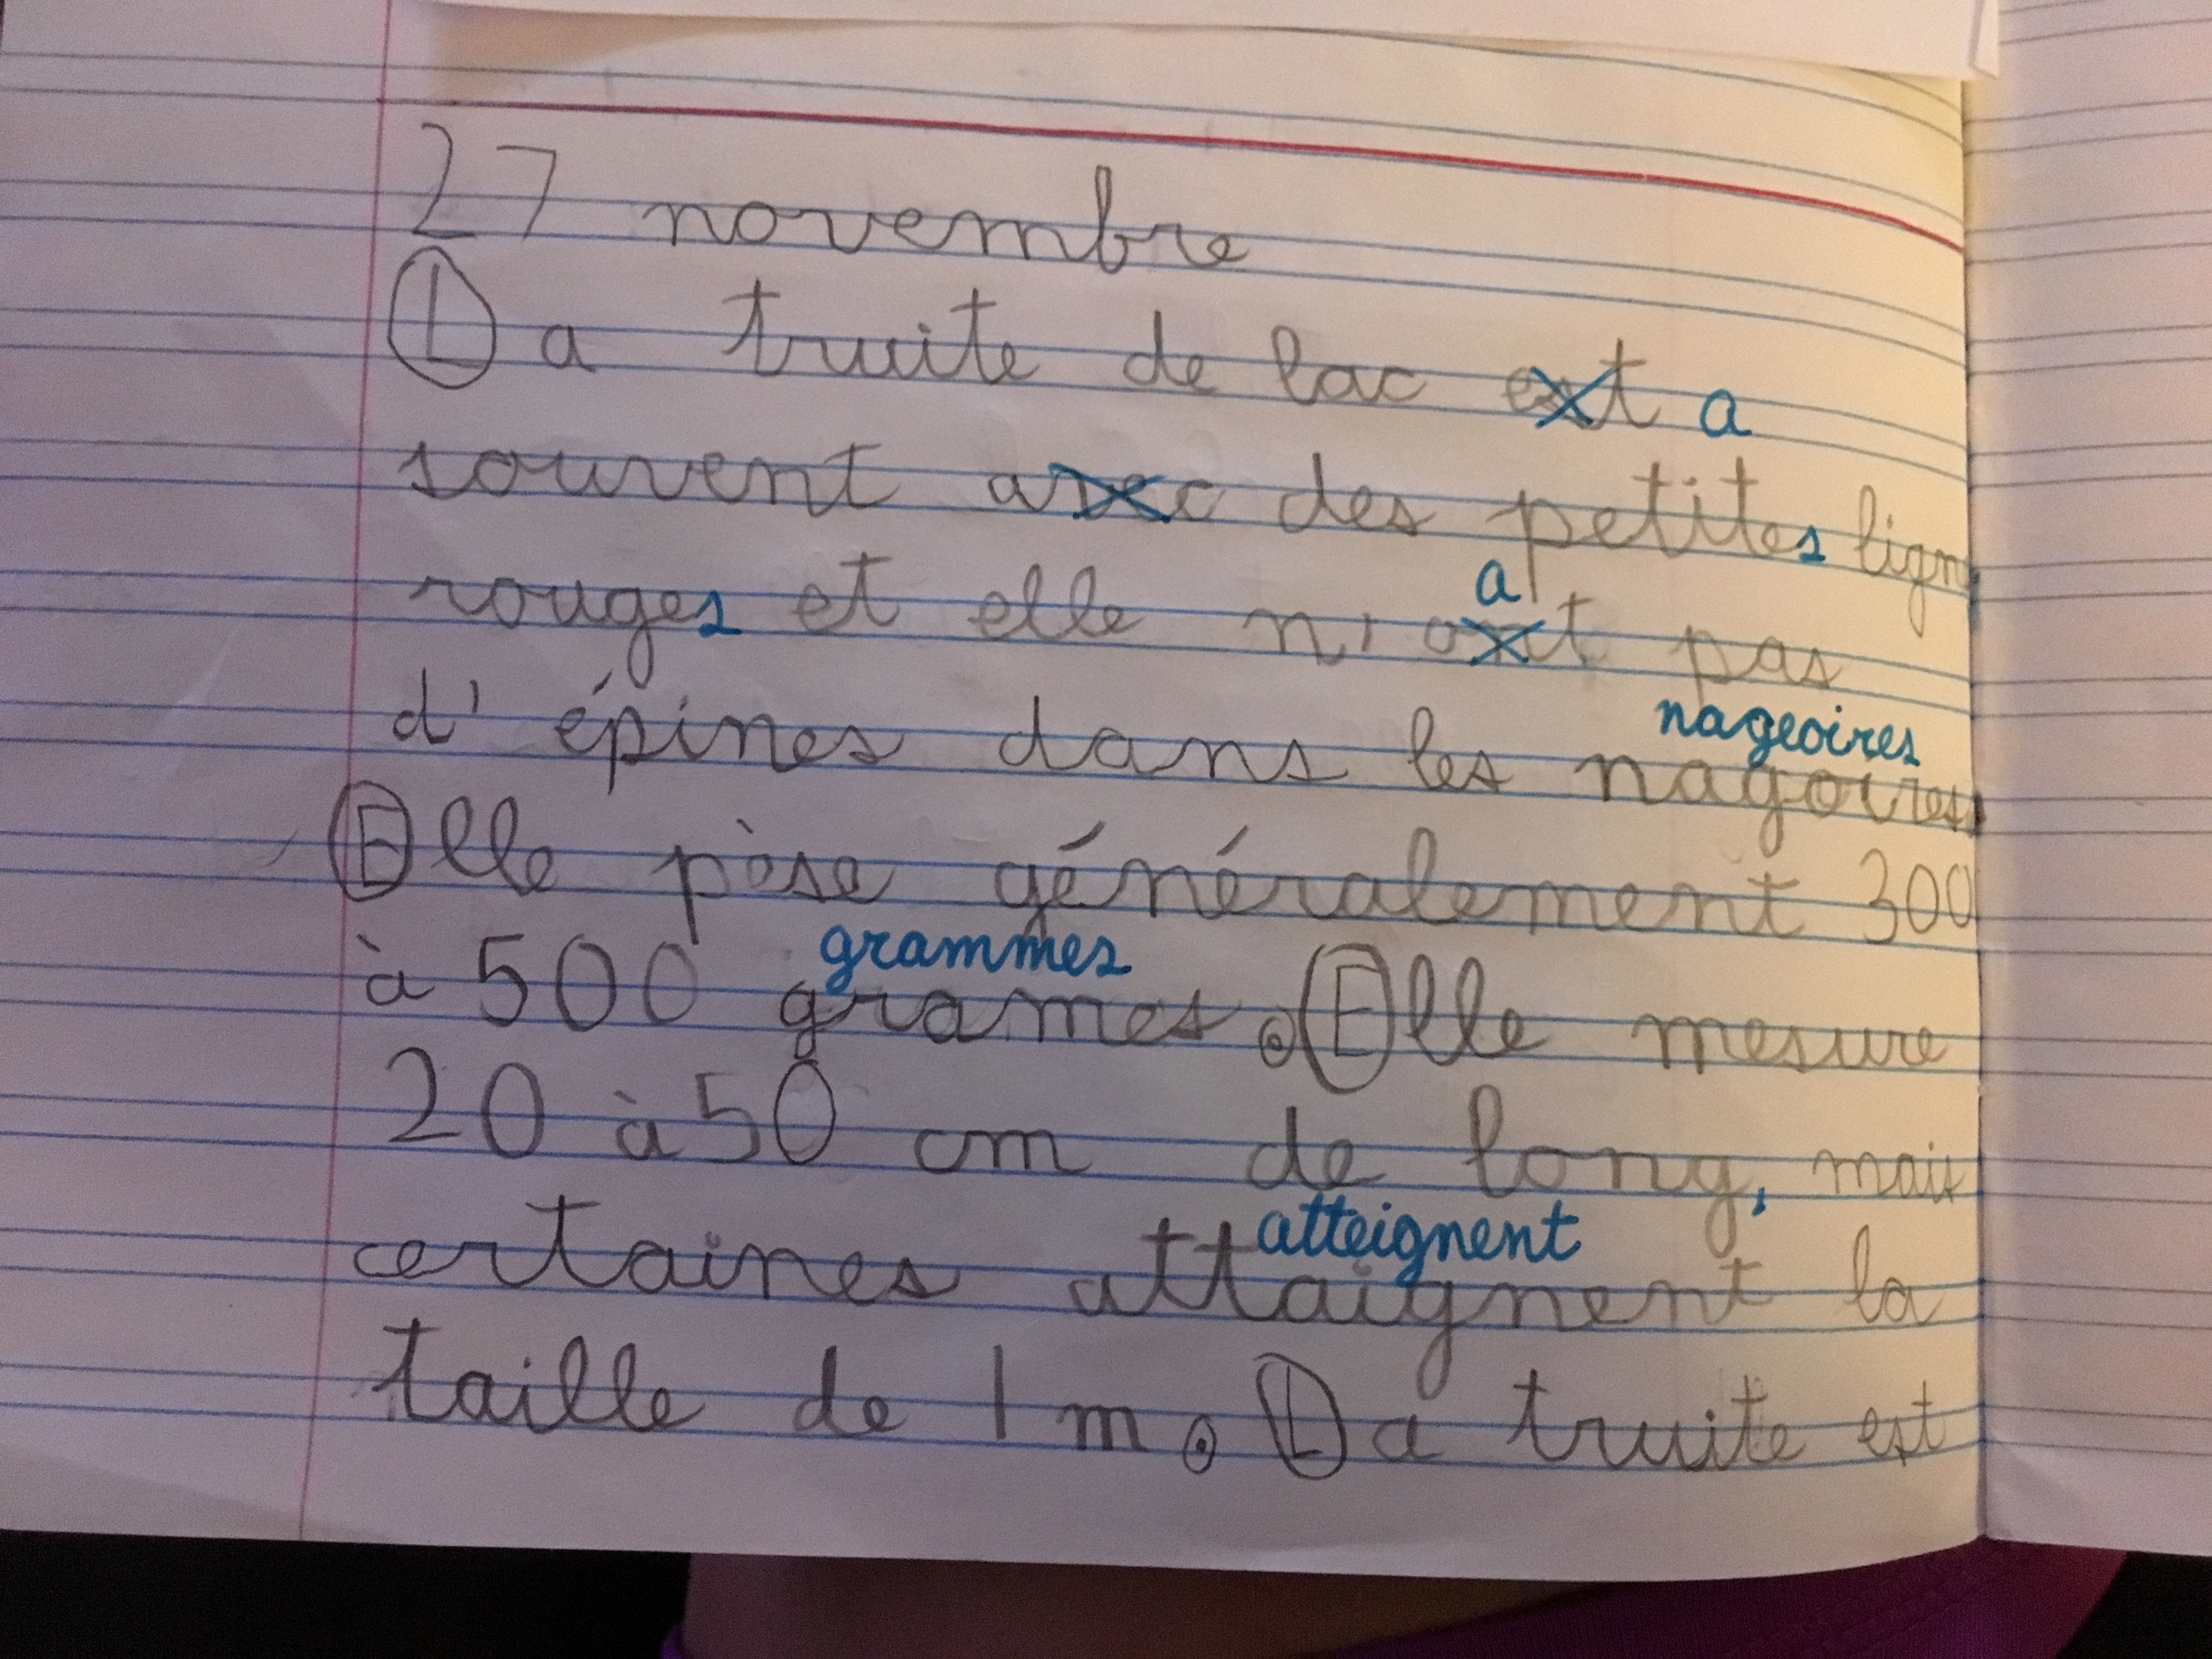 27 novembre
La truite de lac est a
souvent avec des petites lign
rouges et elle n' a pas
d'épines dans les nageoires
nagoires
Elle pèse généralement 300
grammes
à 500 grames. Elle mesure
20 à 50 cm de long, mais
atteignent
certaines attaignent la
taille de 1 m. La truite est